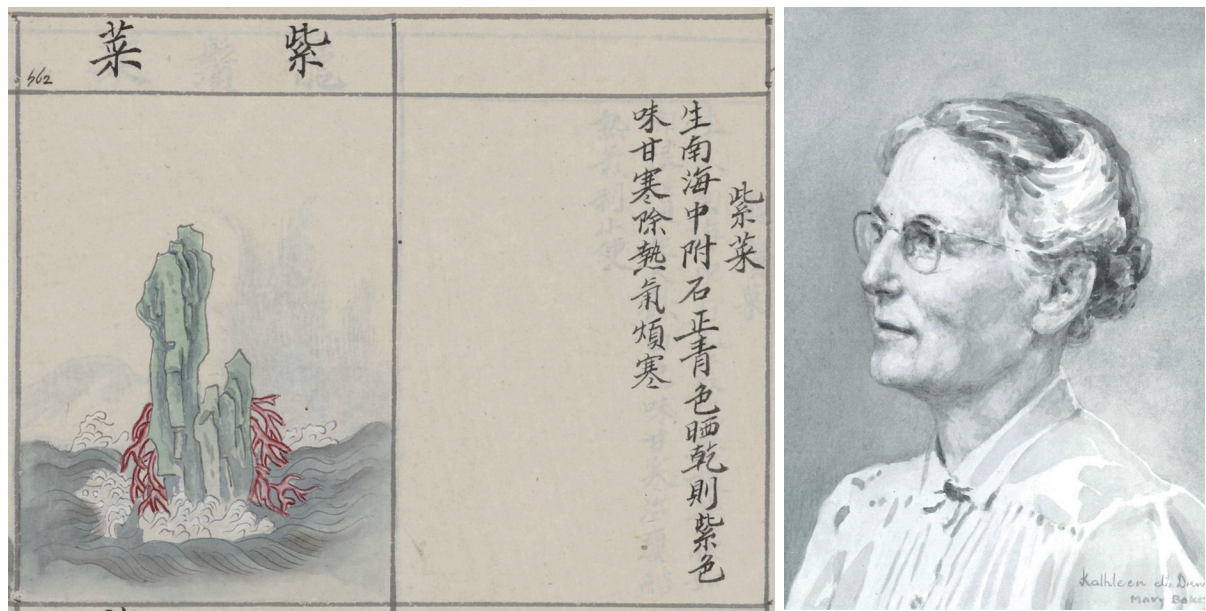 紫菜
562
紫菜
生南海中附石正青色晒乾則紫色
味甘寒除熱氣煩塞
Kathleen
Mary